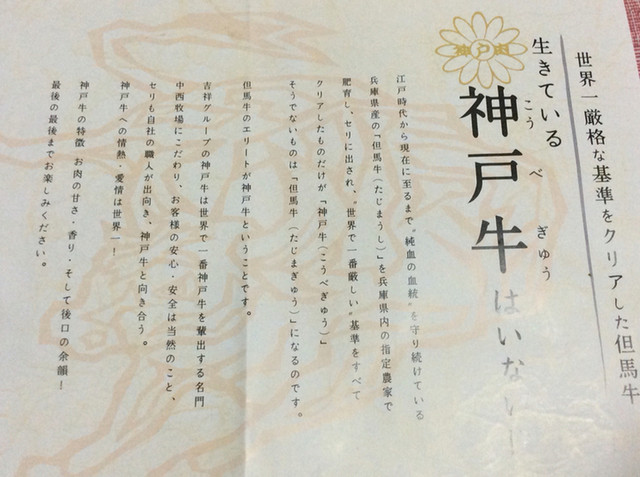 世界一厳格な基準をクリアした但馬牛
生きている
神戸牛はいない！
こう べ ぎゅう
神戸肉
江戸時代から現在に至るまで“純血の血統”を守り続けている
兵庫県産の「但馬牛（たじまうし）」を兵庫県内の指定農家で
肥育し、セリに出され、“世界で一番厳しい”基準をすべて
クリアしたものだけが「神戸牛（こうべぎゅう）」
そうでないものは「但馬牛（たじまぎゅう）」になるのです。
但馬牛のエリートが神戸牛ということです。
吉祥グループの神戸牛は世界で一番神戸牛を輩出する名門
中西牧場にこだわり、お客様の安心・安全は当然のこと、
セリも自社の職人が出向き、神戸牛と向き合う。
神戸牛への情熱・愛情は世界一！
神戸牛の特徴 お肉の甘さ・香り・そして後口の余韻！
最後の最後までお楽しみください。